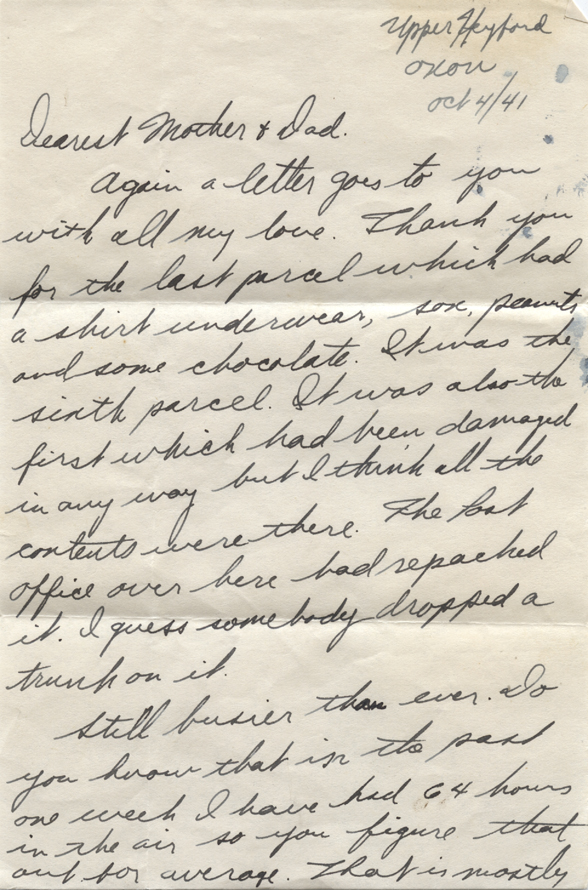 Upper Heyford
Oxon
Oct 4/41
Dearest Mother & Dad.
Again a letter goes to you
with all my love. Thank you
for the last parcel which had
a shirt underwear, sox, peanuts
and some chocolate. It was the
sixth parcel. It was also the
first which had been damaged
in any way but I think all the
contents were there. The Post
office over here had repacked
it. I guess somebody dropped a
trunk on it.
Still busier than ever. Do
you know that in the past
one week I have had 64 hours
in the air so you figure that
out for average. That is mostly